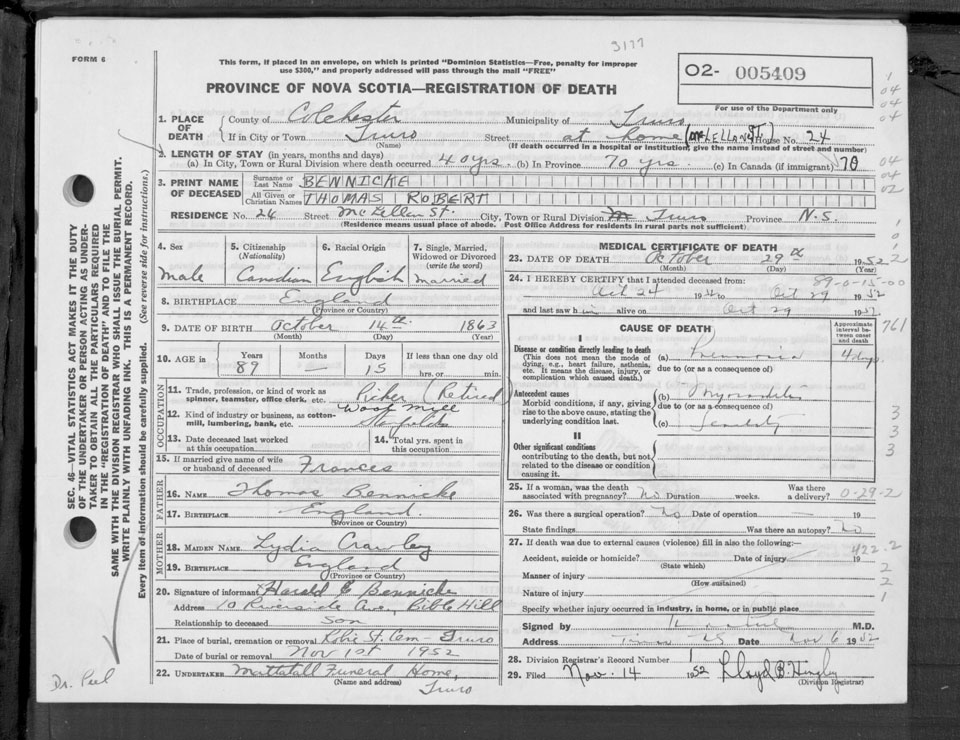 3177
FORM 6
This form, if placed in an envelope, on which is printed "Dominion Statistics—Free, penalty for improper
use $300," and properly addressed will pass through the mail "FREE"
02- 005409
PROVINCE OF NOVA SCOTIA—REGISTRATION OF DEATH
For use of the Department only
1. PLACE OF DEATH
County of Colchester Municipality of Truro
If in City or Town Truro Street at home (McLELLON ST.) House No. 24
(Name) (If death occurred in a hospital or institution, give the name instead of street and number)
2. LENGTH OF STAY (in years, months and days)
(a) In City, Town or Rural Division where death occurred 40 yrs. (b) In Province 70 yrs. (c) In Canada (if immigrant) 70
3. PRINT NAME OF DECEASED
Surname or Last Name BENNICKE
All Given or Christian Names THOMAS ROBERT
RESIDENCE No. 24 Street McLellan St. City, Town or Rural Division Truro Province N.S.
(Residence means usual place of abode. Post Office Address for residents in rural parts not sufficient)
4. Sex
Male
5. Citizenship
(Nationality)
Canadian
6. Racial Origin
English
7. Single, Married, Widowed or Divorced
(write the word)
Married
8. BIRTHPLACE England
(Province or Country)
9. DATE OF BIRTH October 14th 1863
(Month) (Day) (Year)
10. AGE in Years Months Days If less than one day old
89 — 15 hrs. or min.
OCCUPATION
11. Trade, profession, or kind of work as spinner, teamster, office clerk, etc. Picker (Retired
12. Kind of industry or business, as cotton-mill, lumbering, bank, etc. Wool Mill
Stanfields
13. Date deceased last worked at this occupation
14. Total yrs. spent in this occupation
15. If married give name of wife or husband of deceased Frances
FATHER
16. NAME Thomas Bennicke
17. BIRTHPLACE England
(Province or Country)
MOTHER
18. MAIDEN NAME Lydia Crawley
19. BIRTHPLACE England
(Province or Country)
20. Signature of informant Harold E Bennicke
Address 10 Riverside Ave, Bible Hill
Relationship to deceased Son
21. Place of burial, cremation or removal Robie St. Cem - Truro
Date of burial or removal Nov 1st 1952
22. UNDERTAKER Mattatall Funeral Home,
(Name and address) Truro
MEDICAL CERTIFICATE OF DEATH
23. DATE OF DEATH October 29th 1952
(Month) (Day) (Year)
89-0-15-00
24. I HEREBY CERTIFY that I attended deceased from:
Oct 24 19 to Oct 29 1952
and last saw him alive on Oct 29 1952
CAUSE OF DEATH
Approximate interval between onset and death
I
Disease or condition directly leading to death
(This does not mean the mode of dying, e.g., heart failure, asthenia, etc. It means the disease, injury, or complication which caused death.)
(a) Pneumonia 4 days
due to (or as a consequence of)
Antecedent causes
Morbid conditions, if any, giving rise to the above cause, stating the underlying condition last.
(b) Myocarditis
due to (or as a consequence of)
(c) Senility
II
Other significant conditions
contributing to the death, but not related to the disease or condition causing it.
25. If a woman, was the death associated with pregnancy? No Duration weeks. Was there a delivery? 0-29-2
26. Was there a surgical operation? No Date of operation — 19
State findings Was there an autopsy? No
27. If death was due to external causes (violence) fill in also the following:—
Accident, suicide or homicide? Date of injury 19
(State which)
422-2
Manner of injury
(How sustained)
Nature of injury
Specify whether injury occurred in industry, in home, or in public place
Signed by M.D.
Address Truro NS Date Nov 6 1952
28. Division Registrar's Record Number
29. Filed Nov. 14 1952 Lloyd B. Hingley
(Division Registrar)
SEC. 46—VITAL STATISTICS ACT MAKES IT THE DUTY
OF THE UNDERTAKER OR PERSON ACTING AS UNDER-
TAKER TO OBTAIN ALL THE PARTICULARS REQUIRED
IN THE "REGISTRATION OF DEATH" AND TO FILE THE
SAME WITH THE DIVISION REGISTRAR WHO SHALL ISSUE THE BURIAL PERMIT.
WRITE PLAINLY WITH UNFADING INK. THIS IS A PERMANENT RECORD.
Every item of information should be carefully supplied. (See reverse side for instructions.)
Dr. Peel
1
04
04
04
04
02
761
3
3
3
2
2
1